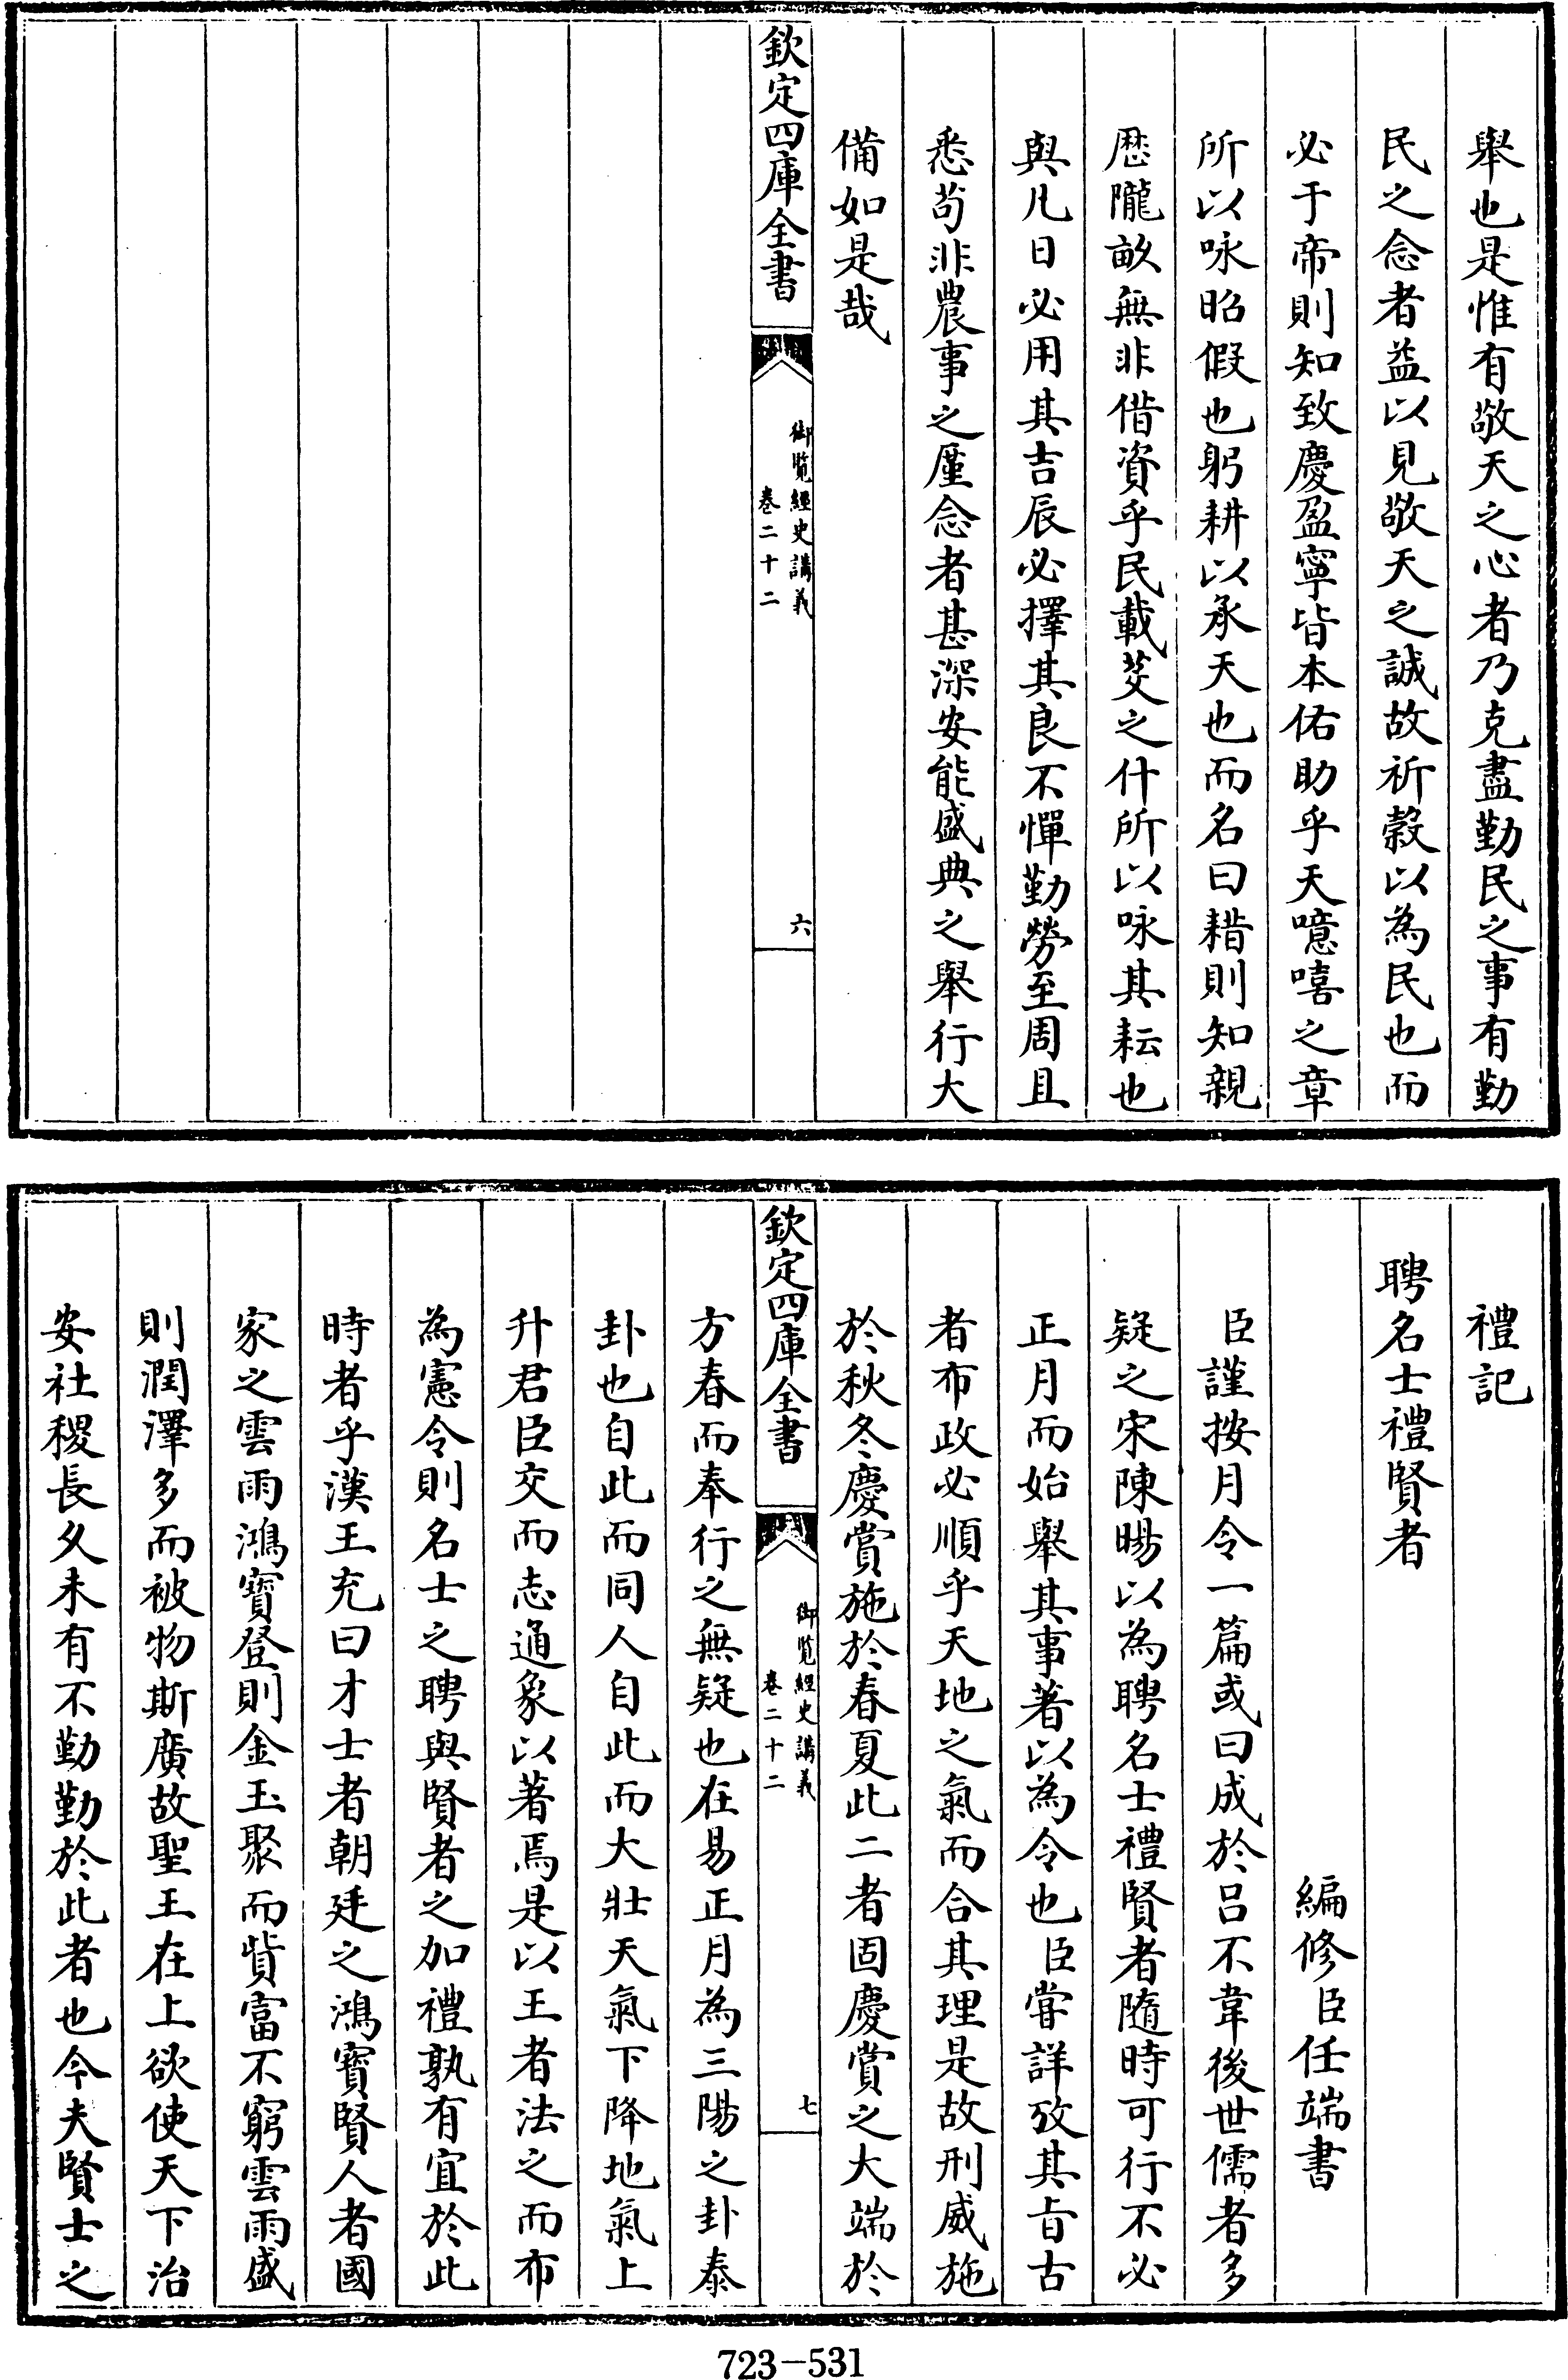 舉也是惟有敬天之心者乃克盡勤民之事有勤
民之念者益以見敬天之誠故祈榖以為民也而
必于帝則知致慶盈寧皆本佑助乎天噫嘻之章
所以咏昭假也躬耕以承天也而名曰耤則知親
歴隴畝無非借資乎民載芟之什所以咏其耘也
與凡日必用其吉辰必擇其良不憚勤勞至周且
悉茍非農事之厪念者甚深安能盛典之舉行大
備如是哉
欽定四庫全書
御覽經史講義
卷二十二
六
禮記
聘名士禮賢者
編修臣任端書
臣謹按月令一篇或曰成於呂不韋後世儒者多
疑之宋陳暘以為聘名士禮賢者隨時可行不必
正月而始舉其事著以為令也臣嘗詳攷其旨古
者布政必順乎天地之氣而合其理是故刑威施
於秋冬慶賞施於春夏此二者固慶賞之大端於
欽定四庫全書
御覽經史講義
卷二十二
七
方春而奉行之無疑也在易正月為三陽之卦泰
卦也自此而同人自此而大壯天氣下降地氣上
升君臣交而志通象以著焉是以王者法之而布
為憲令則名士之聘與賢者之加禮孰有宜於此
時者乎漢王充曰才士者朝廷之鴻寳賢人者國
家之雲雨鴻寳登則金玉聚而貲富不窮雲雨盛
則潤澤多而被物斯廣故聖王在上欲使天下治
安社稷長久未有不勤勤於此者也今夫賢士之
723-531